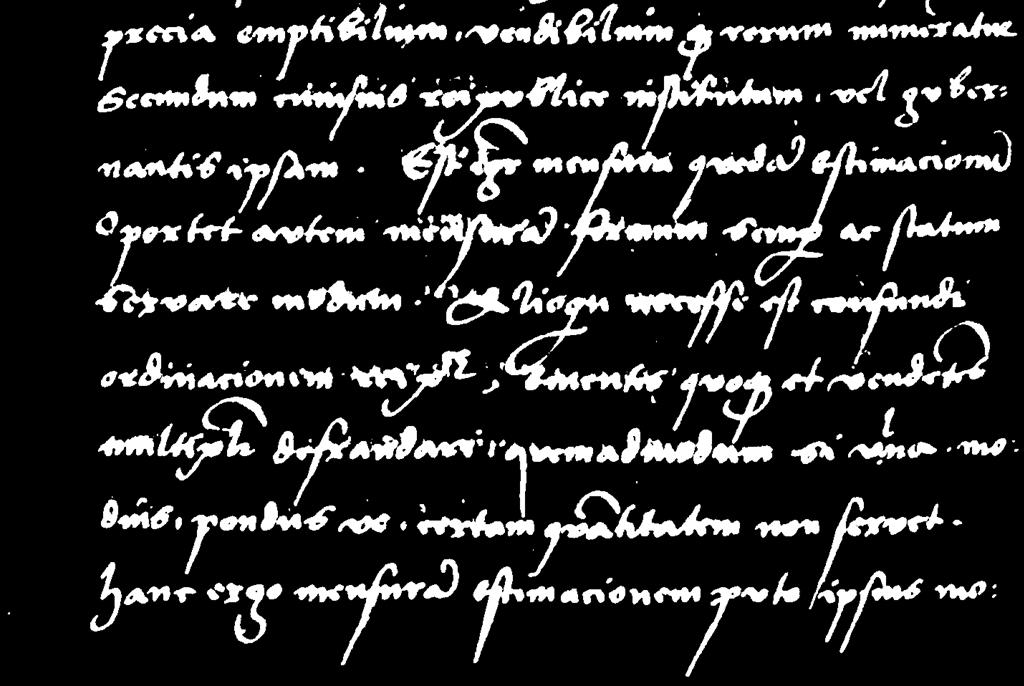 precia emptibilium, vendibilium q3 rerum numeratur
Secundum cuiusuis reipublice institutum, vel guber:
nantis ipsam. Est ergo mensura quedā estimacionū
Oportet autem mensurā firmum semp ac statum
servare modum. Alioqui necesse est confundi
ordinacionem reipce, Ementes quoq3 et vendetes
multiplr defraudari, quemadmodum si vlna, mo:
dius, pondus ve, certam quātitatem non servet.
Hanc ergo mensurā estimacionem puto ipsius mo: